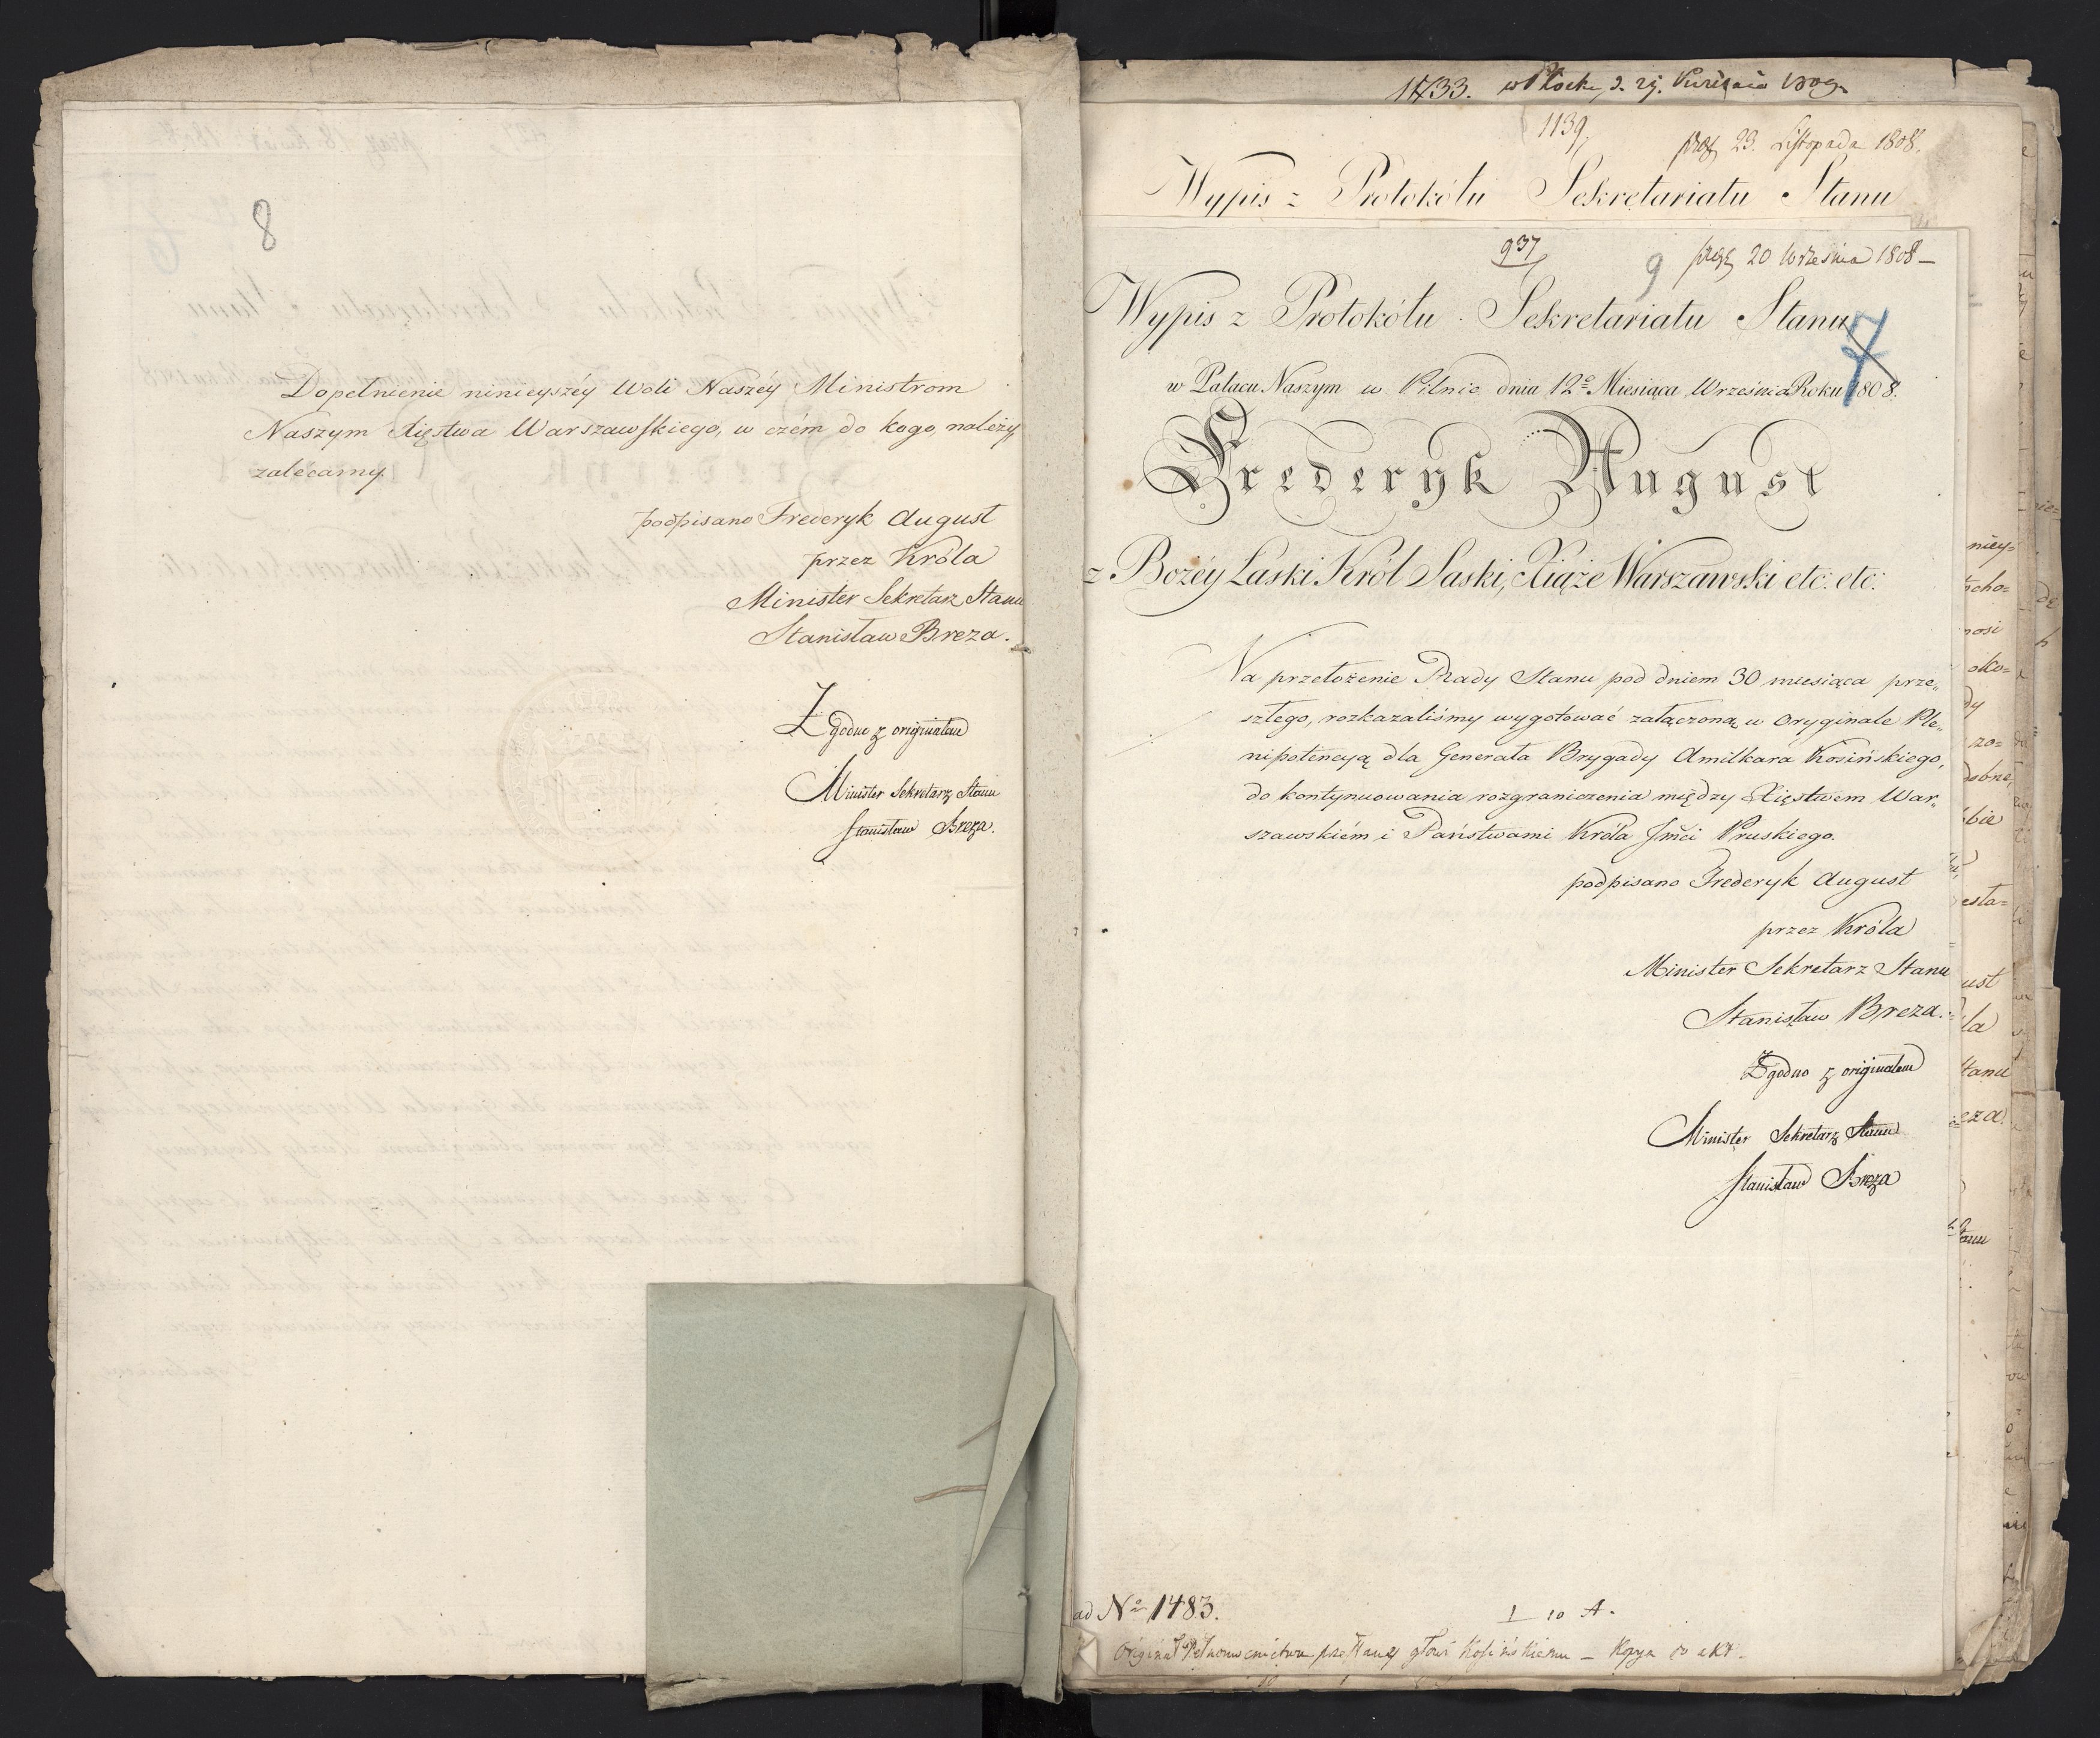 8
Dopełnienie ninieyszéy Woli Naszéy Ministrom
Naszym Xięstwa Warszawskiego, w czém do kogo należy,
zalécamy.
podpisano Frederyk August
przez Króla
Minister Sekretarz Stanu
Stanisław Breza.
Zgodno z originałem
Minister Sekretarz Stanu
Stanisław Breza.
1733. w Płocku, d. 29.
1139.
prez 23. Listopada 1808.
Wypis z Protokółu Sekretariatu Stanu
937
9 prez 20 Września 1808 —
Wypis z Protokółu Sekretariatu Stanu
7
w Pałacu Naszym w Pilnic dnia 12º Miesiąca Września Roku 1808.
Frederyk August
z Bożéy Łaski Król Saski, Xiąże Warszawski etc: etc:
Na przełożenie Rady Stanu pod dniem 30 miesiąca prze„
szłego, rozkazaliśmy wygotować załączoną w Oryginale Ple„
nipotencyą dla Generała Brygady Amilkara Kosińskiego,
do kontynuowania rozgraniczenia między Xięstwem War„
szawskiém i Państwami Króla Jmći Pruskiego.
podpisano Frederyk August
przez Króla
Minister Sekretarz Stanu
Stanisław Breza.
Zgodno z originałem
Minister Sekretarz Stanu
Stanisław Breza
ad Nº 1483.
1 10 A.
Original Pełnomocnictwa przesłany Kosińskiemu — Kopya do akt —